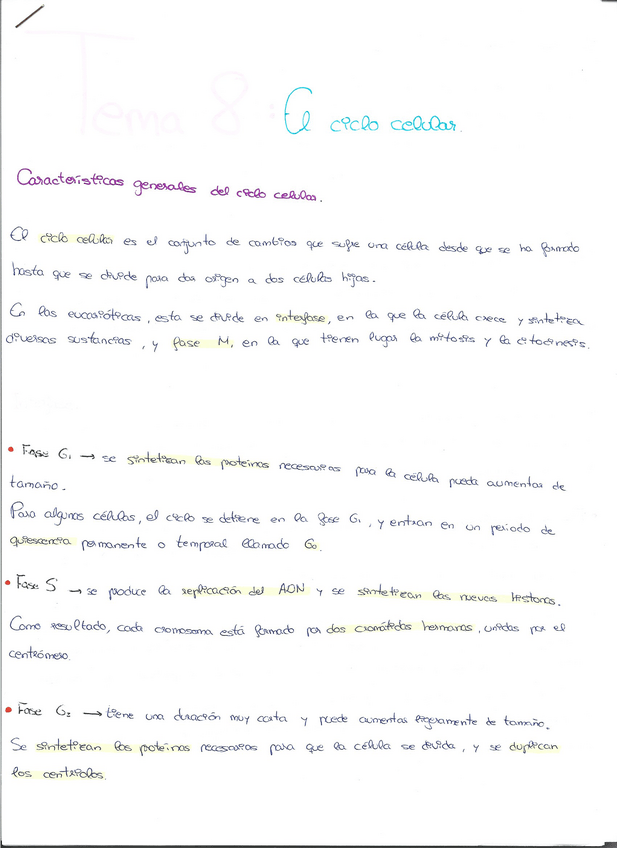 Tema 8:
El ciclo celular.
Características generales del ciclo celular.
El ciclo celular es el conjunto de cambios que sufre una célula desde que se ha formado
hasta que se divide para dar origen a dos células hijas.
En las eucarióticas, esta se divide en interfase, en la que la célula crece y sintetiza
diversas sustancias, y fase M, en la que tienen lugar la mitosis y la citocinesis.
• Fase G₁ → se sintetizan las proteínas necesarias para la célula pueda aumentar de
tamaño.
Para algunas células, el ciclo se detiene en la fase G₁, y entran en un periodo de
quiescencia permanente o temporal llamado G₀.
• Fase S → se produce la replicación del ADN y se sintetizan las nuevas histonas.
Como resultado, cada cromosoma está formado por dos cromátidas hermanas, unidas por el
centrómero.
• Fase G₂ → tiene una duración muy corta y puede aumentar ligeramente de tamaño.
Se sintetizan las proteínas necesarias para que la célula se divida, y se duplican
los centriolos.